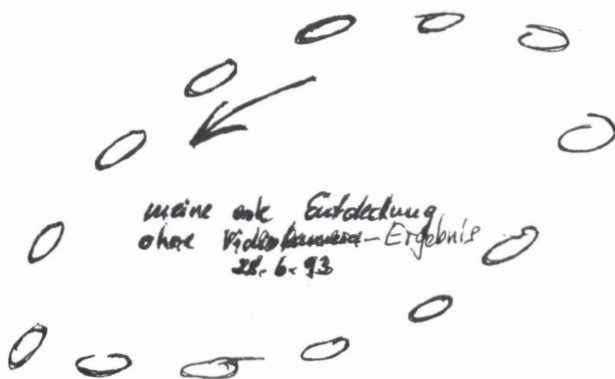 meine erste Entdeckung
ohne Videokamera-Ergebnis
28.6.93